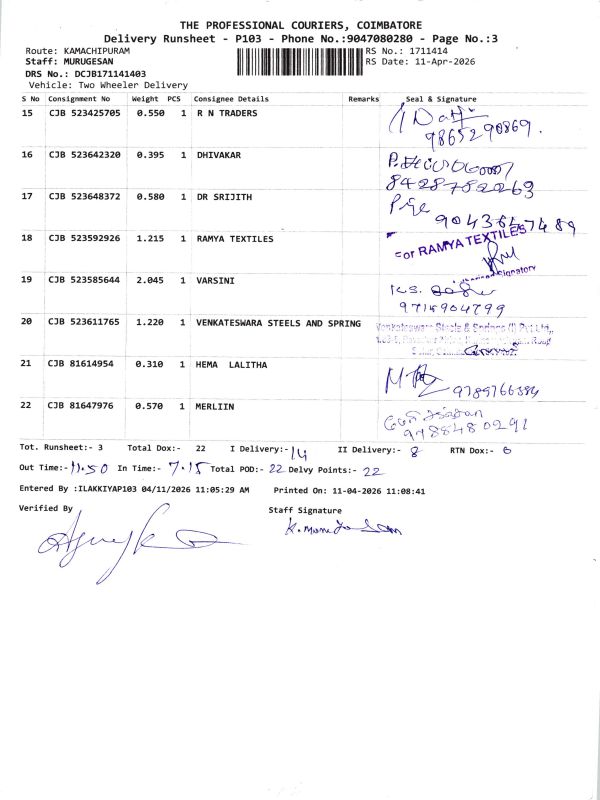 THE PROFESSIONAL COURIERS, COIMBATORE
Delivery Runsheet - P103 - Phone No.:9047080280 - Page No.:3
Route: KAMACHIPURAM
RS No.: 1711414
Staff: MURUGESAN
RS Date: 11-Apr-2026
DRS No.: DCJB171141403
Vehicle: Two Wheeler Delivery
S No Consignment No Weight PCS Consignee Details Remarks Seal & Signature
15 CJB 523425705 0.550 1 R N TRADERS
9865290869.
16 CJB 523642320 0.395 1 DHIVAKAR
8428782263
17 CJB 523648372 0.580 1 DR SRIJITH
18 CJB 523592926 1.215 1 RAMYA TEXTILES
For RAMYA TEXTILES
Signatory
19 CJB 523585644 2.045 1 VARSINI
K.S.
9715904799
20 CJB 523611765 1.220 1 VENKATESWARA STEELS AND SPRING
Venkateswara Steels & Springs (I) Pvt Ltd.,
21 CJB 81614954 0.310 1 HEMA LALITHA
9789766384
22 CJB 81647976 0.570 1 MERLIIN
9788480291
Tot. Runsheet:- 3 Total Dox:- 22 I Delivery:- 14 II Delivery:- 8 RTN Dox:- 0
Out Time:- 11.50 In Time:- 7.15 Total POD:- 22 Delvy Points:- 22
Entered By :ILAKKIYAP103 04/11/2026 11:05:29 AM Printed On: 11-04-2026 11:08:41
Verified By
Staff Signature